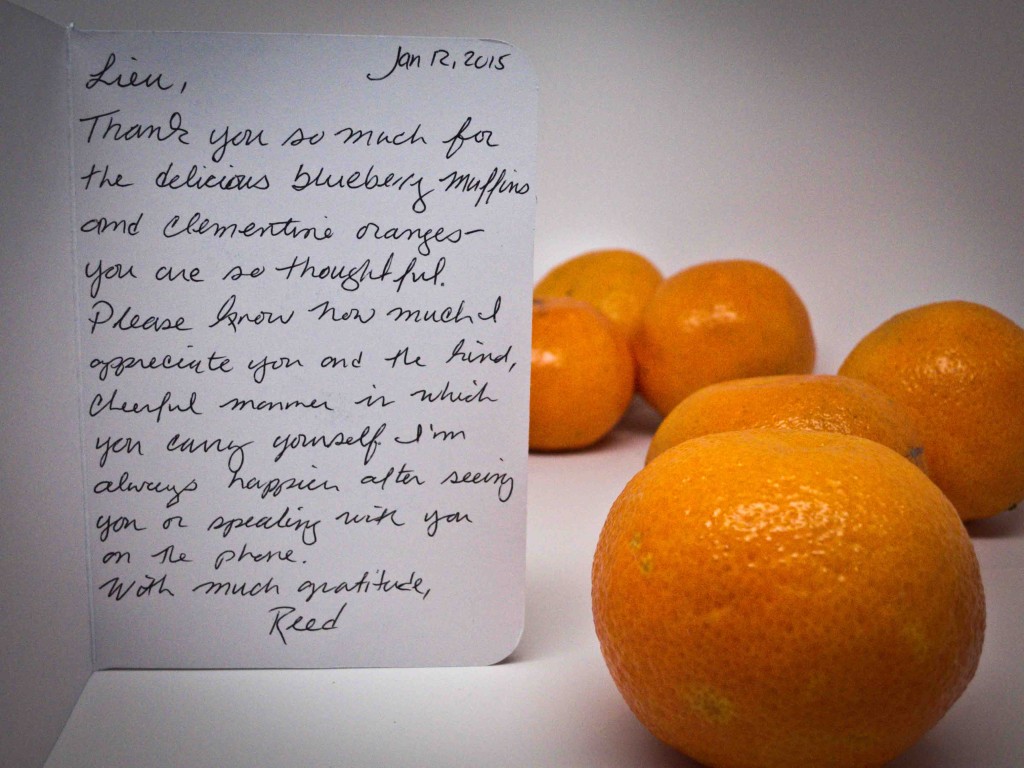 Jan 12, 2015
Lieu,
Thank you so much for
the delicious blueberry muffins
and clementine oranges-
you are so thoughtful.
Please know how much I
appreciate you and the kind,
cheerful manner in which
you carry yourself. I'm
always happier after seeing
you or speaking with you
on the phone.
With much gratitude,
Reed